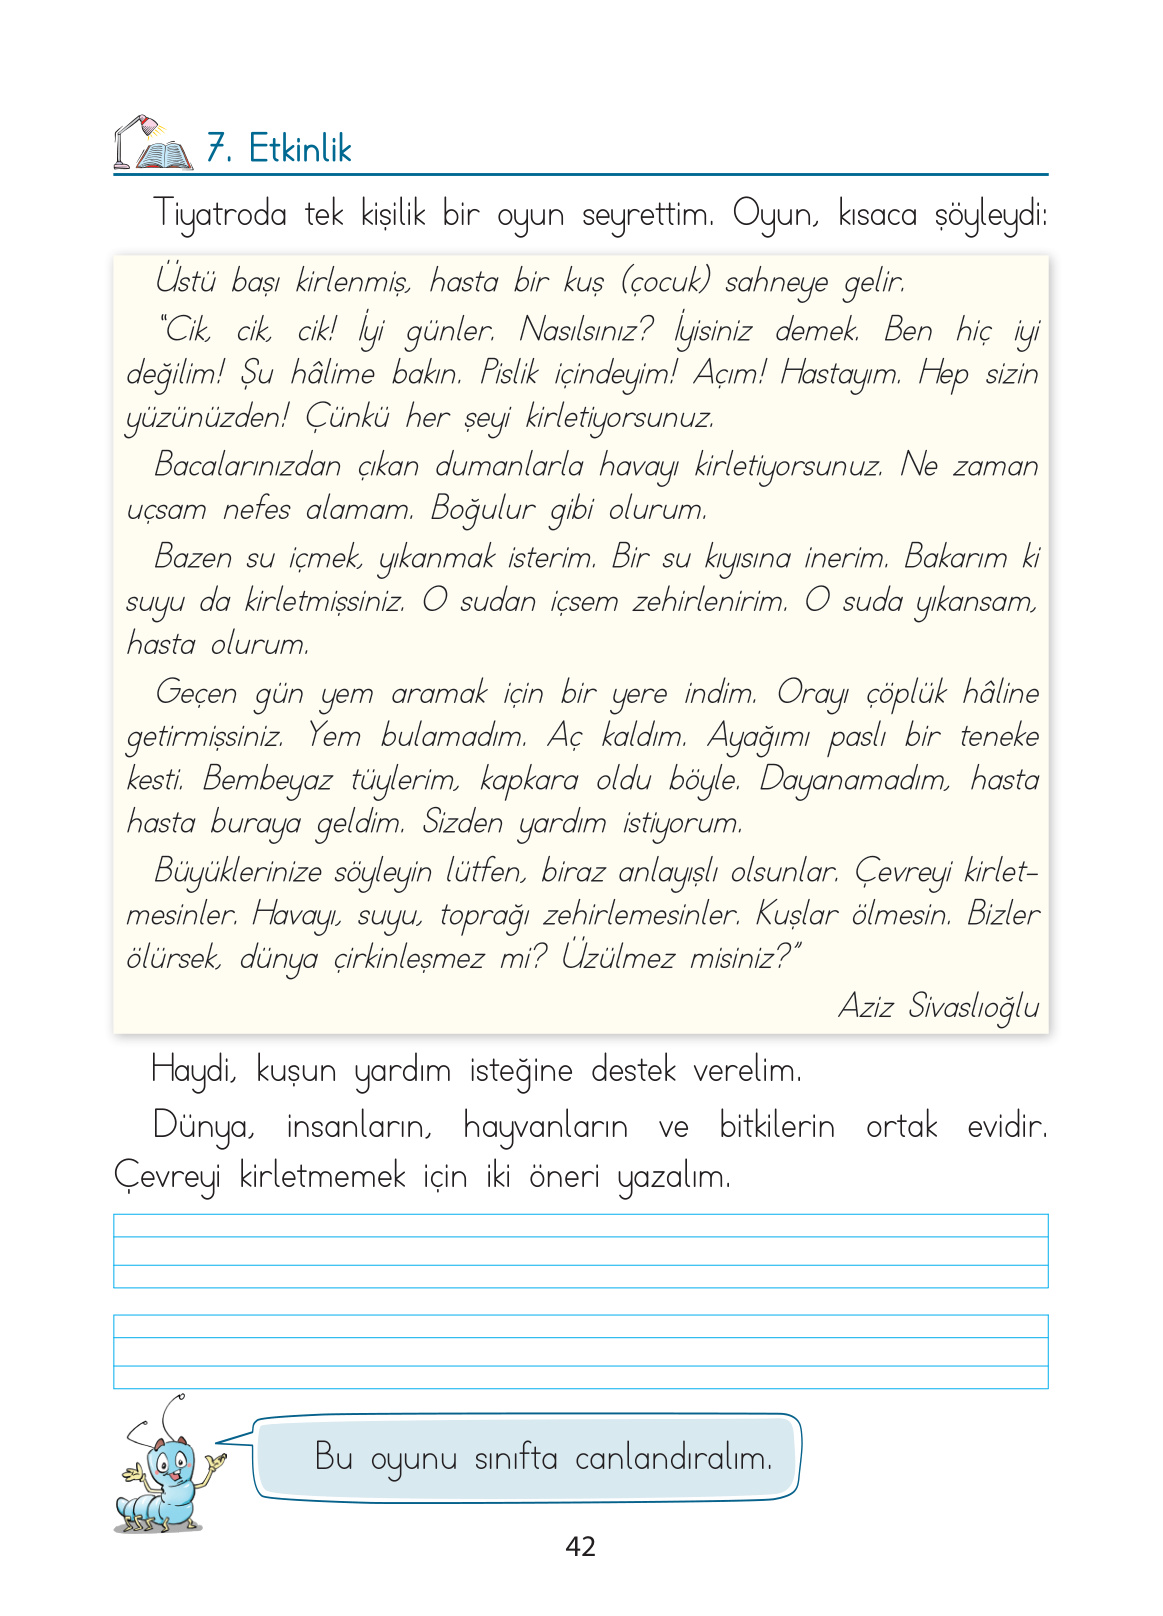 7. Etkinlik
Tiyatroda tek kişilik bir oyun seyrettim. Oyun, kısaca şöyleydi:
Üstü başı kirlenmiş, hasta bir kuş (çocuk) sahneye gelir.
“Cik, cik, cik! İyi günler. Nasılsınız? İyisiniz demek. Ben hiç iyi
değilim! Şu hâlime bakın. Pislik içindeyim! Açım! Hastayım. Hep sizin
yüzünüzden! Çünkü her şeyi kirletiyorsunuz.
Bacalarınızdan çıkan dumanlarla havayı kirletiyorsunuz. Ne zaman
uçsam nefes alamam. Boğulur gibi olurum.
Bazen su içmek, yıkanmak isterim. Bir su kıyısına inerim. Bakarım ki
suyu da kirletmişsiniz. O sudan içsem zehirlenirim. O suda yıkansam,
hasta olurum.
Geçen gün yem aramak için bir yere indim. Orayı çöplük hâline
getirmişsiniz. Yem bulamadım. Aç kaldım. Ayağımı paslı bir teneke
kesti. Bembeyaz tüylerim, kapkara oldu böyle. Dayanamadım, hasta
hasta buraya geldim. Sizden yardım istiyorum.
Büyüklerinize söyleyin lütfen, biraz anlayışlı olsunlar. Çevreyi kirlet-
mesinler. Havayı, suyu, toprağı zehirlemesinler. Kuşlar ölmesin. Bizler
ölürsek, dünya çirkinleşmez mi? Üzülmez misiniz?”
Aziz Sivaslıoğlu
Haydi, kuşun yardım isteğine destek verelim.
Dünya, insanların, hayvanların ve bitkilerin ortak evidir.
Çevreyi kirletmemek için iki öneri yazalım.
Bu oyunu sınıfta canlandıralım.
42